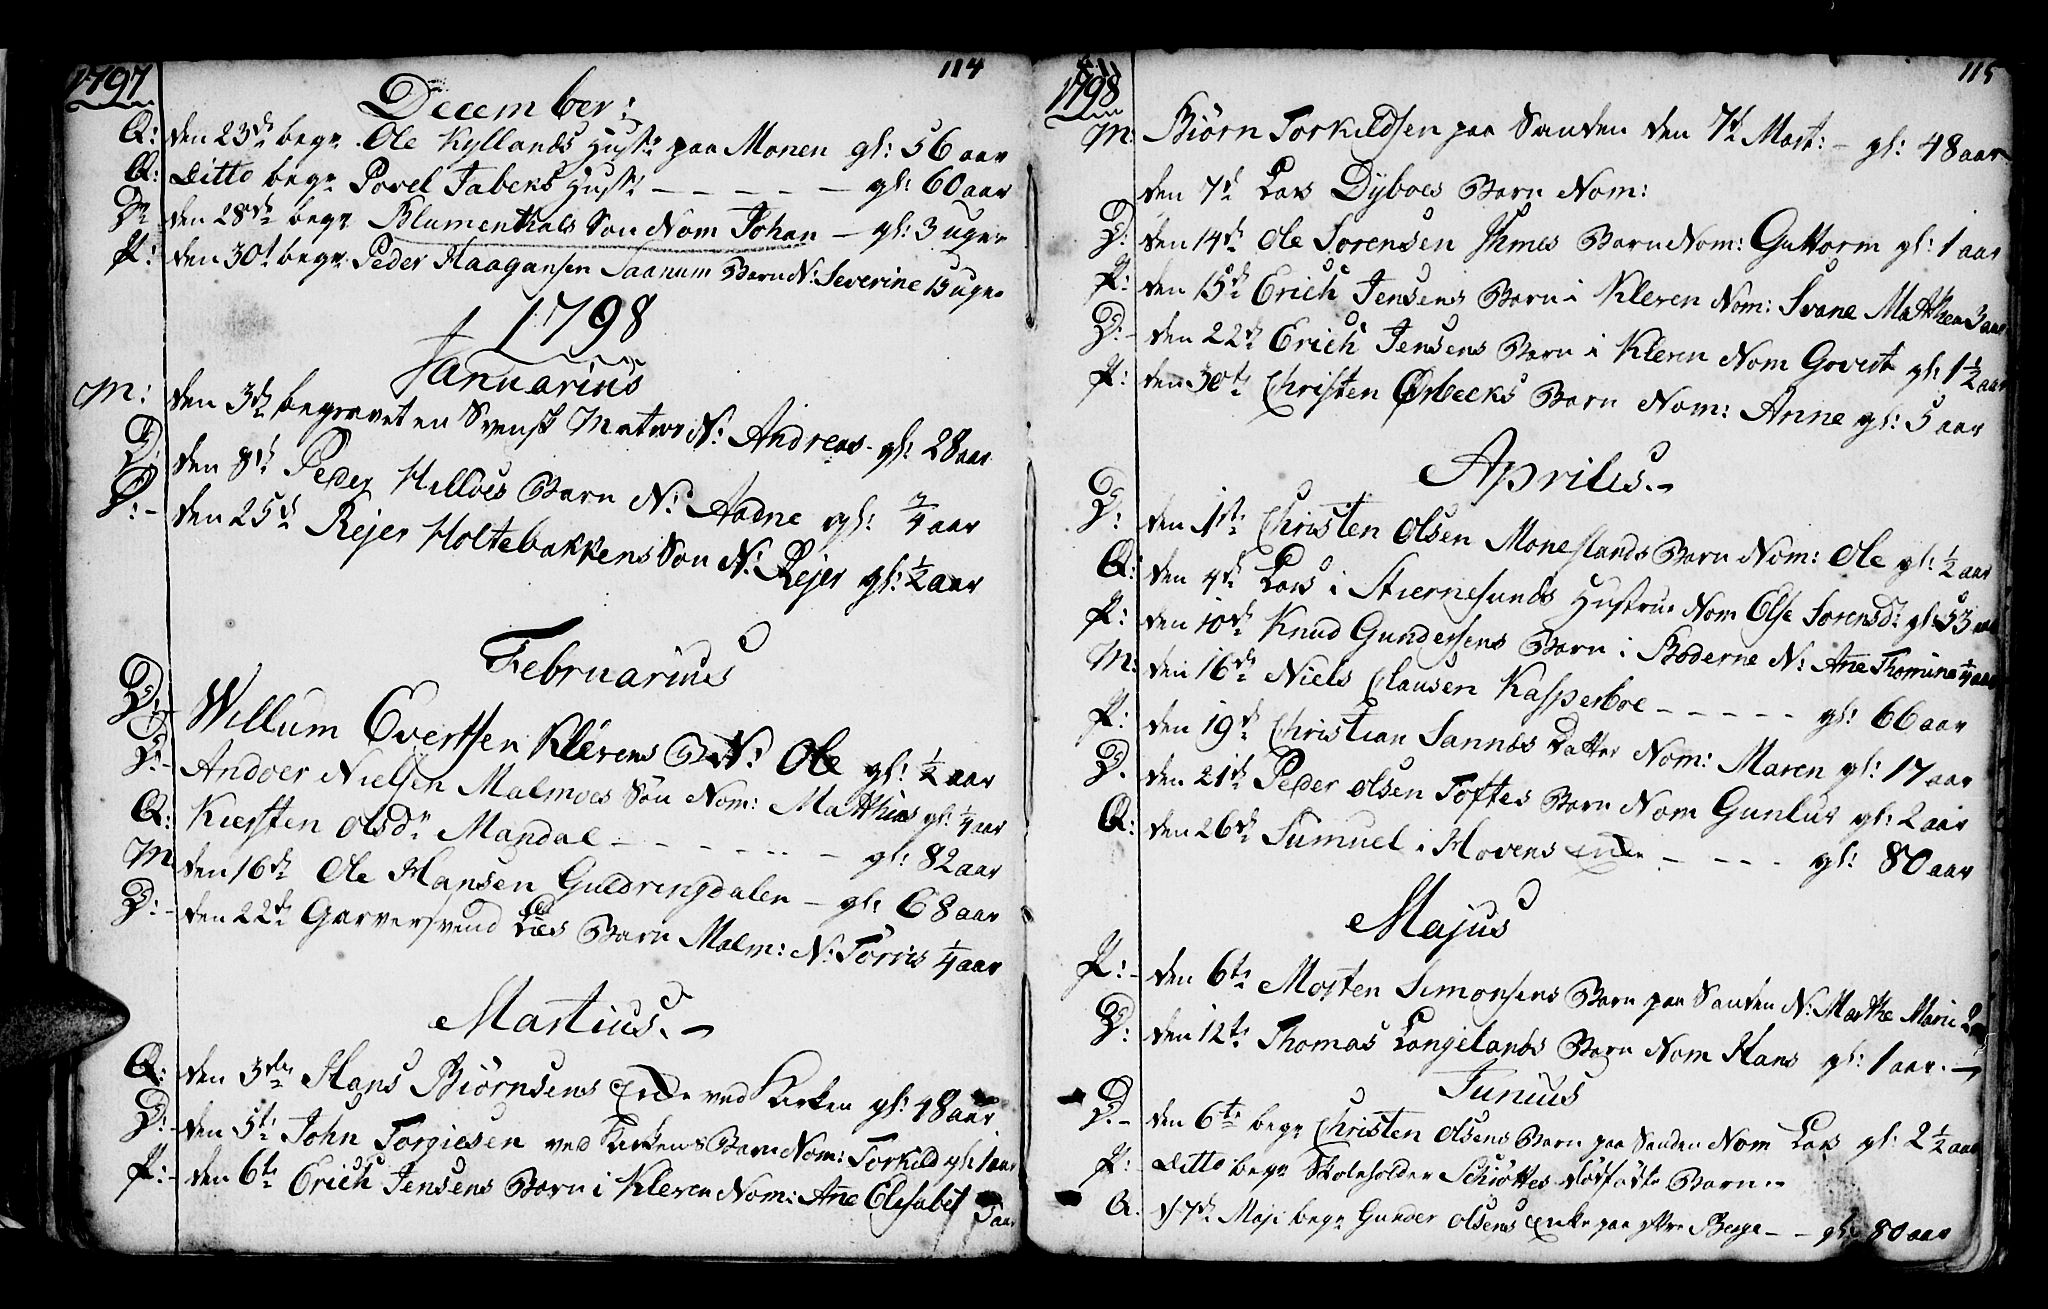 1797
114
December:
Q: den 23de begr. Ole Kyllands Hustr. paa Monen gl: 56 aar
Q: Ditto begr. Povel Tabeks Hustr. — — — — — gl: 60 aar
D: den 28de begr. Blumenthals Søn Nom Johan — gl: 3 uger
P: den 30t begr. Peder Haagansen Saanum Barn N: Severine 13 uger
1798
Januarius
M: den 3de begravet en Svensk Matros N: Andreas — gl: 28 aar
D: den 8de Peder Hilloes Barn N: Aadne gl: 3/4 aar
D: — den 25de Rejer Holtebakkens Søn N: Rejer gl: 1/2 aar
Februarius
D: — Willum Evertsen Klevens B. N: Ole gl: 1/2 aar
D: — Andoer Nielsen Malmoes Søn Nom: Matthias gl: 1/4 aar
Q: Kiersten Olsdr Mandal — — — — — gl: 82 aar
M den 16de Ole Hansen Guldringdalen — gl: 68 aar
D: — den 22de Garversvend Lies Barn Malm: N: Torris 1/4 aar
Martius. —
Q: den 3die Hans Biørnsens Enke ved Kirken gl: 48 aar
D: — den 5te John Torgiesen ved Kirkens Barn Nom: Torkild gl: 1 aar
P: — den 6te Erich Jensens Barn i Kleven Nom: Ane Elisabet 5 aar
1798
115
M: Biørn Torkildsen paa Sanden den 7de Mart: — gl: 48 aar
den 7de Lars Dyboes Barn Nom:
D: den 14de Ole Sorensen Ihmes Barn Nom: Guttorm gl: 1 aar
P: den 15de Erich Jensens Barn i Kleven Nom: Svane Mathea 3 aar
D: — den 22de Erich Jensens Barn i Kleven Nom Govert gl: 1 1/2 aar
P: den 30te Christen Ørbecks Barn Nom: Anne gl: 5 aar
Aprilis. —
D: den 1ste Christen Olsen Moneslands Barn Nom: Ole gl: 1/2 aar
Q: den 4de Lars i Stiernesunds Hustrue Nom Else Sorensdr gl: 53 aar
P: den 10de Knud Gundersens Barn i Boderne N: Ane Thomine 1/4 aar
M: den 16de Niels Clausen Kasperboe — — — — — gl: 66 aar
P: den 19de Christian Sannes Datter Nom: Maren gl: 17 aar
D. den 21de Peder Olsen Toftes Barn Nom Gunlus gl: 2 aar
Q: den 26de Samuel i Hovens Enke — — — — gl: 80 aar
Majus
P: — den 6te Morten Simonsens Barn paa Sanden N: Marthe Marie 2
D: den 12te Thomas Langelands Barn Nom Hans gl: 1 aar. —
Junius
D. — den 6te begr Christen Olsens Barn paa Sanden Nom Lars gl: 2 1/2 aar
P: Ditto begr Skoleholder Schiøttes dødfødte Barn. —
Q. d 7de Maji begr Gunder Olsens Enke paa ytre Berge — — gl: 80 aar